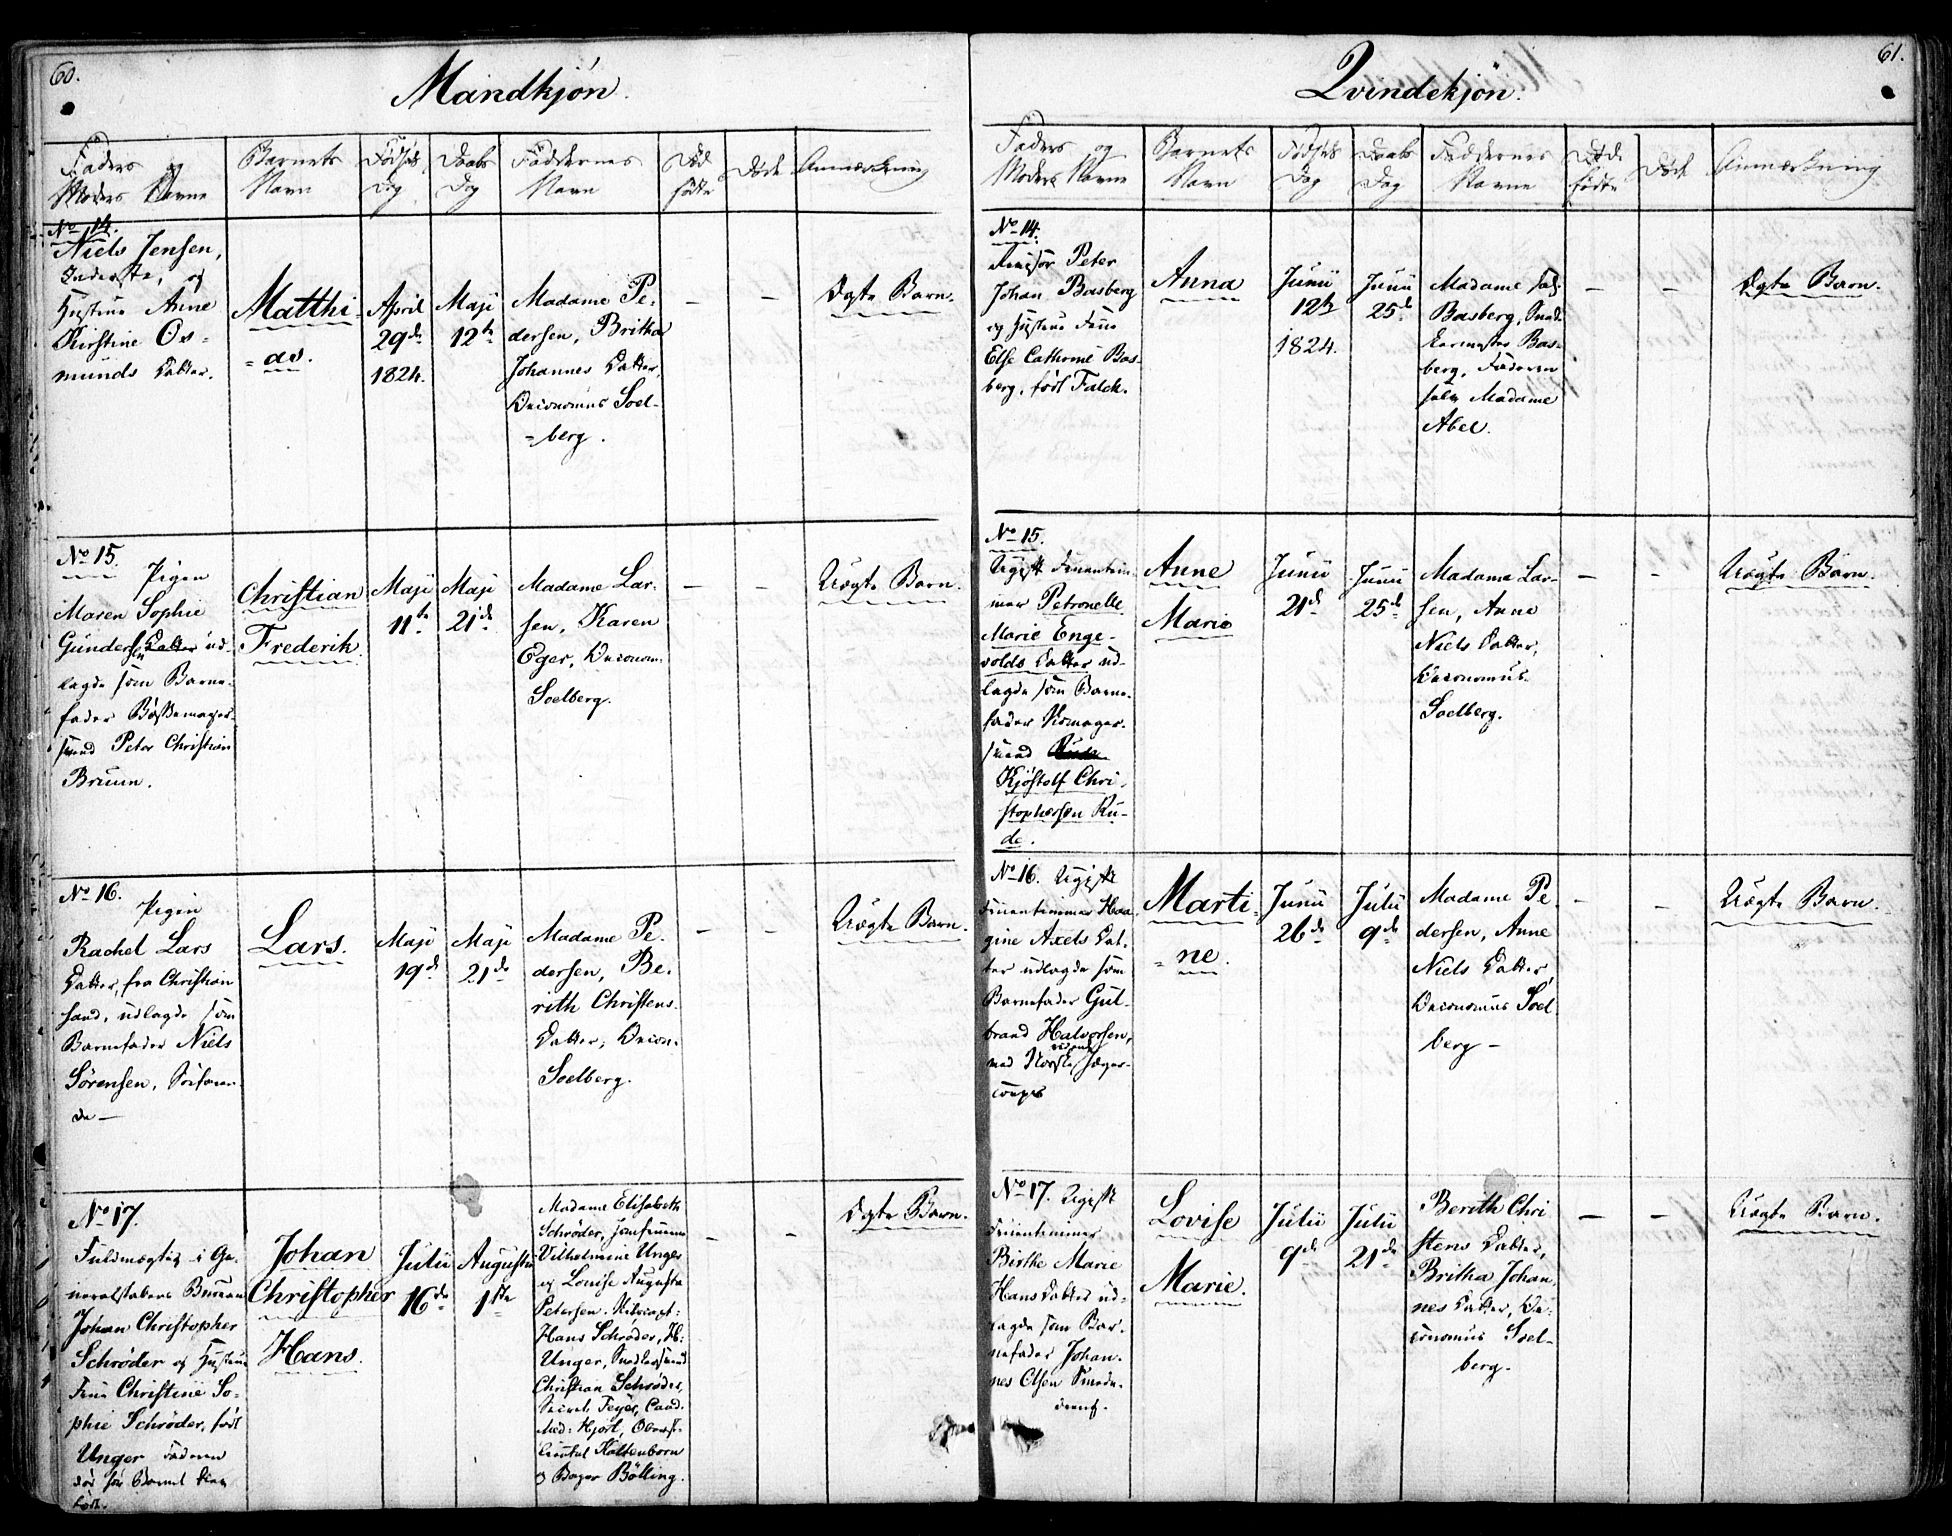 60.
Mandkjön.
Faders og
Moders Navne
Barnets
Navn
Fødsels
Dag
Daabs
Dag
Faddernes
Navn
Død
fødte
Døde
Anmærkning
No 14.
Niels Jensen,
Inderste, og
Hustrue Anne
Kirstine Os-
munds Datter.
Matthi-
as.
April
29de
1824.
Maji
12te
Madame Pe-
dersen, Britha
Johannes Datter,
Oeconomus Soel-
berg.
–
–
Ægte Barn.
No 15.
Pigen
Maren Sophie
Gundersen Datter ud-
lagde som Barne-
fader Bøssemager-
svend Peter Christian
Bruun.
Christian
Frederik
Maji
11te
Maji
21de
Madame Lar-
sen, Karen
Eger, Oeconom:
Soelberg.
–
–
Uægte Barn.
No 16.
Pigen
Rachel Lars
Datter, fra Christian
sand, udlagde som
Barnefader Niels
Sörensen, Søefaren-
de –
Lars.
Maji
19de
Maji
21de
Madame Pe-
dersen, Be-
rith Christens
Datter, Oecon.
Soelberg.
–
–
Uægte Barn.
No 17.
Fuldmægtig i Ge-
neralstabens Bureau
Johan Christopher
Schrøder og Hustrue
Frue Christine So-
phie Schrøder, født
Unger Faderen
død før Barnet blev
født.
Johan
Christopher
Hans.
Julii
16de
Augustii
1ste
Madame Elisabeth
Schrøder, Jomfruerne
Vilhelmine Unger
og Lovise Augusta
Petersen. Ritmest:
Hans Schrøder, H:
Unger, Snedkersvend
Christian Schrøder,
Secret. Feyer, Cand.
Med: Hjort, Oberst-
lieutnt Kaltenborn
og Bager Bölling.
–
–
Ægte Barn.
61.
Qvindekjön.
Faders og
Moders Navne
Barnets
Navn
Fødsels
Dag
Daabs
Dag
Faddernes
Navne
Døde
fødte
Døde
Anmærkning
No 14.
Revisor Peter
Johan Basberg
og Hustrue Frue
Else Cathrine Bas-
berg, født Falck.
Anna
Junii
12te
1824.
Junii
25de
Madame
Basberg,
Bas-
berg, Faderen
selv Madame
Abel.
–
–
Ægte Barn.
No 15.
Ugift Fruentim-
mer Petronelle
Marie Enge-
volds Datter ud-
lagde som Barne-
fader
svend
Kjöstolf Chri-
stophersen Ru-
de.
Anne
Marie
Junii
21de
Junii
25de
Madame Lar-
sen, Anne
Niels Datter,
Oeconomus
Soelberg.
–
–
Uægte Barn.
No 16. Ugift
Fruentimmer Haa-
gine Axels Dat-
ter udlagde som
Barnefader Gul-
brand Halvorsen,
ved Norske Jæger-
corps
Marti-
ne.
Junii
26de
Julii
9de
Madame Pe-
dersen, Anne
Niels Datter,
Oeconomus Soel
berg –
–
–
Uægte Barn.
No 17. Ugift
Fruentimmer
Birthe Marie
Hans Datter ud-
lagde som Bar-
nefader Johan-
nes Olsen Smede-
dreng.
Lovise
Marie.
Julii
9de
Julii
21de
Berith Chri
stens Datter,
Britha Johan-
nes Datter, Oe-
conomus Soel-
berg.
–
–
Uægte Barn.